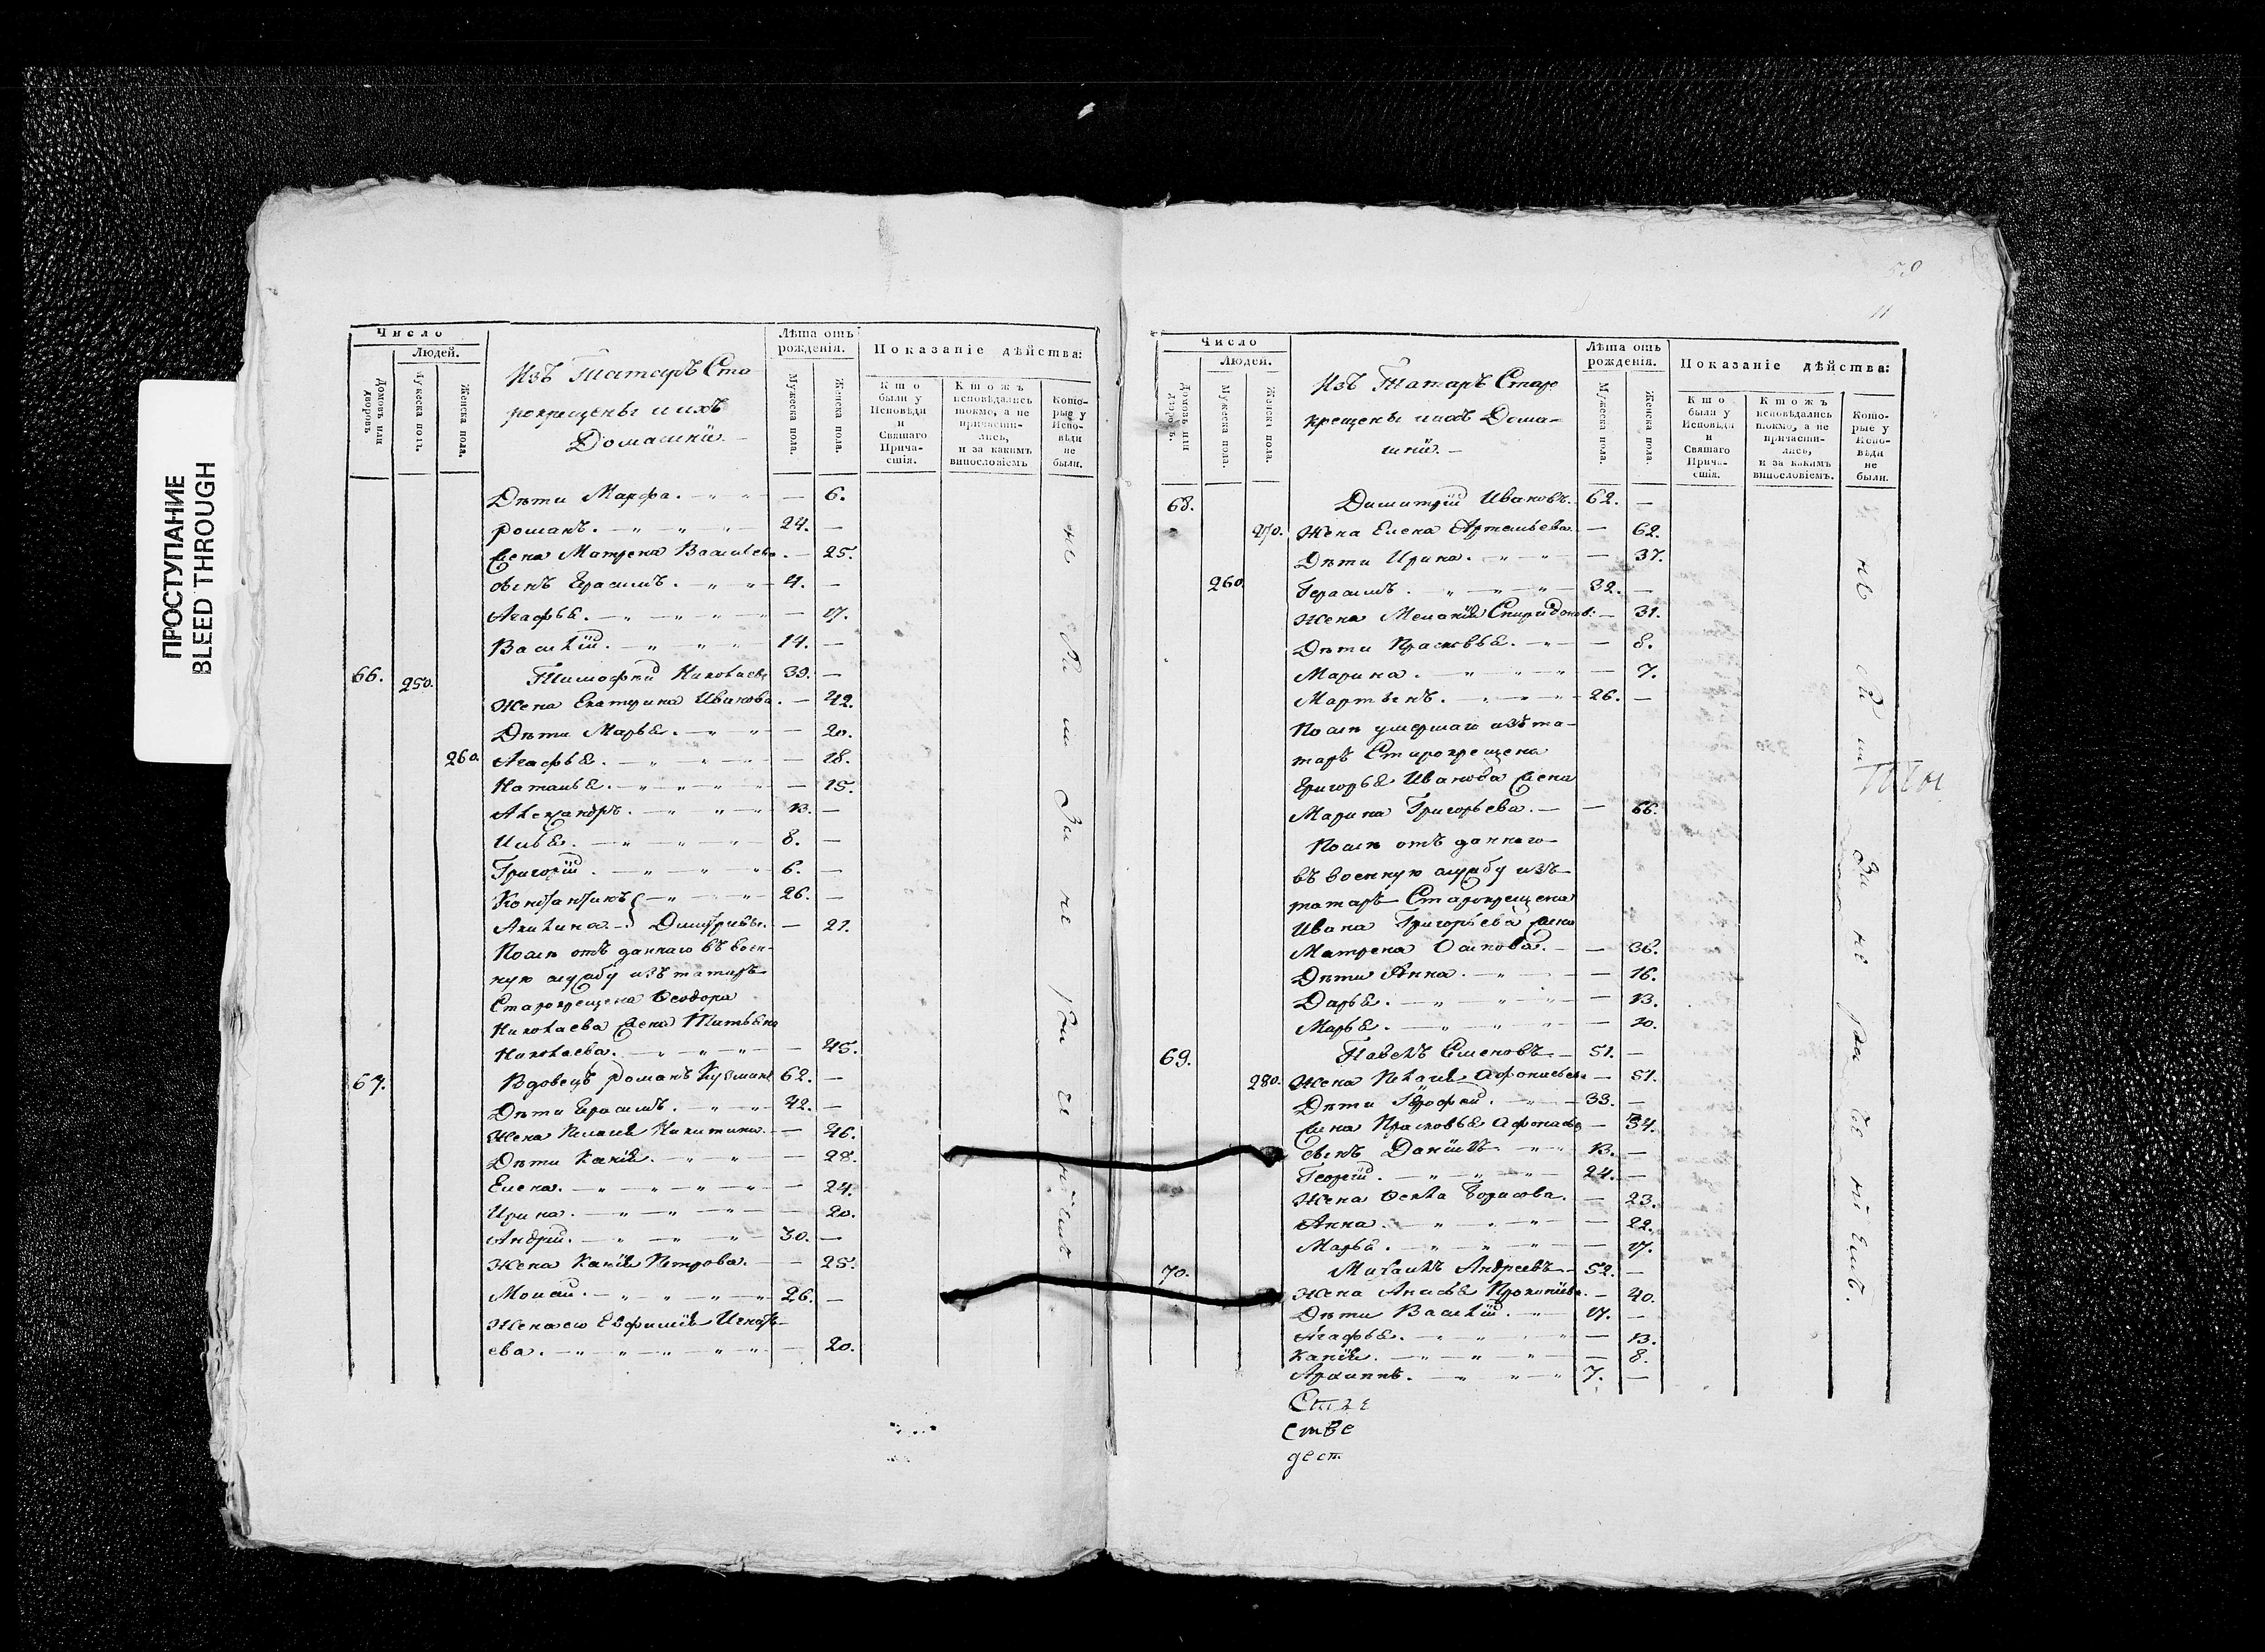 ПРОСТУПАНИЕ
BLEED THROUGH
Число
Людей.
Домовъ или дворовъ.
Мужеска пола.
Женска пола.
Изъ Татаръ Старо
крещены и ихъ
Домашнїи.
Лѣта отъ рожденія.
Мужеска пола.
Женска пола.
Показаніе дѣйства:
Кто были у Исповѣди и Святаго Причастія.
Ктожъ исповѣдались токмо, а не причастились, и за какимъ винословіемъ
Которые у Исповѣди не были.
Дѣти Марфа. — 6.
Романъ. 24. —
жена Матрена Васильева. — 25.
сынъ Герасимъ. 4. —
Агафья. — 17.
Василїй. 14. —
66. 250. Тимофей Николаевъ 39. —
Жена Екатерина Иванова. — 42.
Дѣти Марья. — 20.
260. Агафья. — 18.
Наталья. — 15.
Александръ. 13. —
Илья. 8. —
Григорїй. 6. —
Константинъ 26. —
Акилина Димитрїевы. — 21.
Послѣ отъданнаго въ воен-
ную службу изъ татаръ
Старокрещена Ѳеодора
Николаева жена Татьяна
Николаева. — 45.
67. Вдовецъ Романъ Кузминъ 62. —
Дѣти Герасимъ. 42. —
Жена Пелагея Никитина. — 46.
Дѣти Ксенїя. — 28.
Елена. — 24.
Ирина. — 20.
Андрей. 30. —
Жена Ксенїя Петрова. — 25.
Моисей. 26. —
Жена его Евфимїя Игнать-
ева. — 20.
50
11
Число
Людей.
Домовъ или дворовъ.
Мужеска пола.
Женска пола.
Изъ Татаръ Старо
крещены и ихъ Дома-
шнїи.
Лѣта отъ рожденія.
Мужеска пола.
Женска пола.
Показаніе дѣйства:
Кто были у Исповѣди и Святаго Причастія.
Ктожъ исповѣдались токмо, а не причастились, и за какимъ винословіемъ.
Которые у Исповѣди не были.
68. Димитрїй Ивановъ. 62. —
270. Жена Елена Артемьева. — 62.
Дѣти Ирина. — 37.
260. Герасимъ. 32. —
Жена Меланїя Спиридонов: — 31.
Дѣти Прасковья. — 8.
Марина. — 7.
Мартынъ. 26. —
Послѣ умершаго изъ та-
таръ Старокрещена
Григорья Иванова жена
Марина Григорьева. — 66.
Послѣ отъданнаго
въ военную службу изъ
татаръ Старокрещена
Ивана Григорьева жена
Матрена Осипова. — 36.
Дѣти Анна. — 16.
Дарья. — 13.
Марья. — 10.
69. Павелъ Семеновъ 51. —
280. Жена Пелагея Афонасьева — 51.
Дѣти Ерофей. 33. —
жена Прасковья Афонасьева — 34.
сынъ Данїилъ 13. —
Георгїй. 24. —
Жена Ѳекла Борисова. — 23.
Анна. — 22.
Марья. — 17.
70. Михаилъ Андреевъ 52. —
Жена Анисья Прокопїева. — 40.
Дѣти Василїй. 17. —
Агафья. — 13.
Ксенїя. — 8.
Архипъ. 7. —